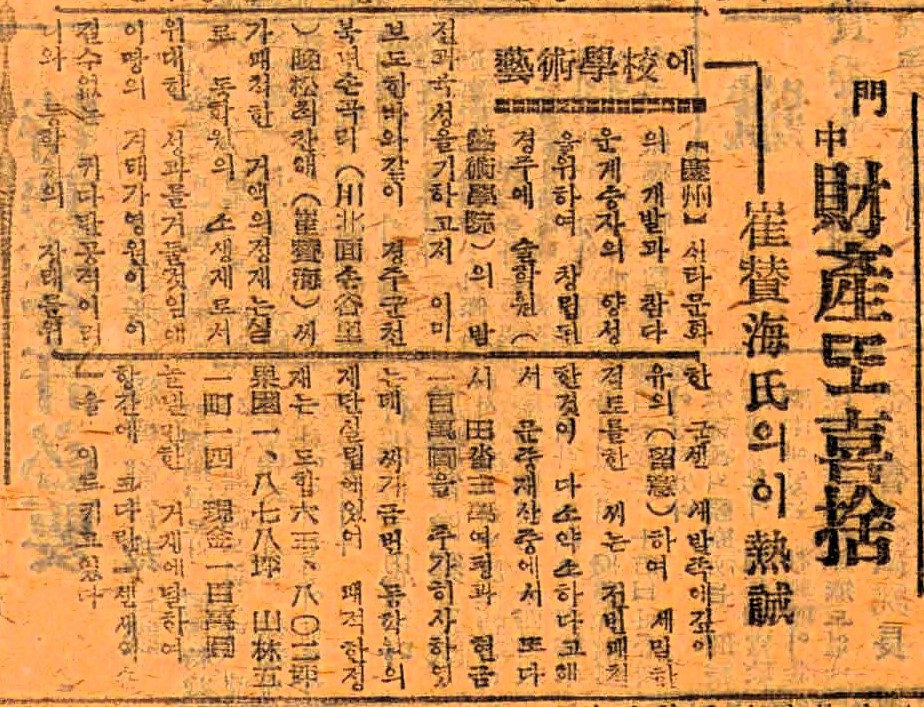 門中 財產또喜捨
崔賛海氏의이熱誠
藝術學校에
【慶州】신라문화
의 개발과 찬다
운게승자의 양성
을위하여 창립된
경주에 술학원(
藝術學院)의 발
전과육성을기하고저 이미
보도한바와같이 경주군천
북면손곡리(川北面孫谷里
)晩松최찬해(崔賛海)씨
가쾌척한 거액의정재는실
로 동학원의 소생제로서
위대한 성과를거둘것임에
이땅의 영원이 이
수없는 커다란공적이려
니와 동학 의 장래를위
한 군센 새발족에깊이
유의(留意)하여 세밀한
검토를한 씨는 전번쾌척
한것이 다소약소하다고해
서 문중재산중에서 또다
시 田畓三萬여평과 현금
一百萬圓을 추가히사하였
는데 씨가금번 동학원의
재단설립에있어 쾌척한정
재는 도합六三、八〇三坪
果園一、八七八坪 山林五
一町一四 現金一百萬圓
거게에달하여
항간에 커다란 「쎈세이숀
」을 이르키고있다